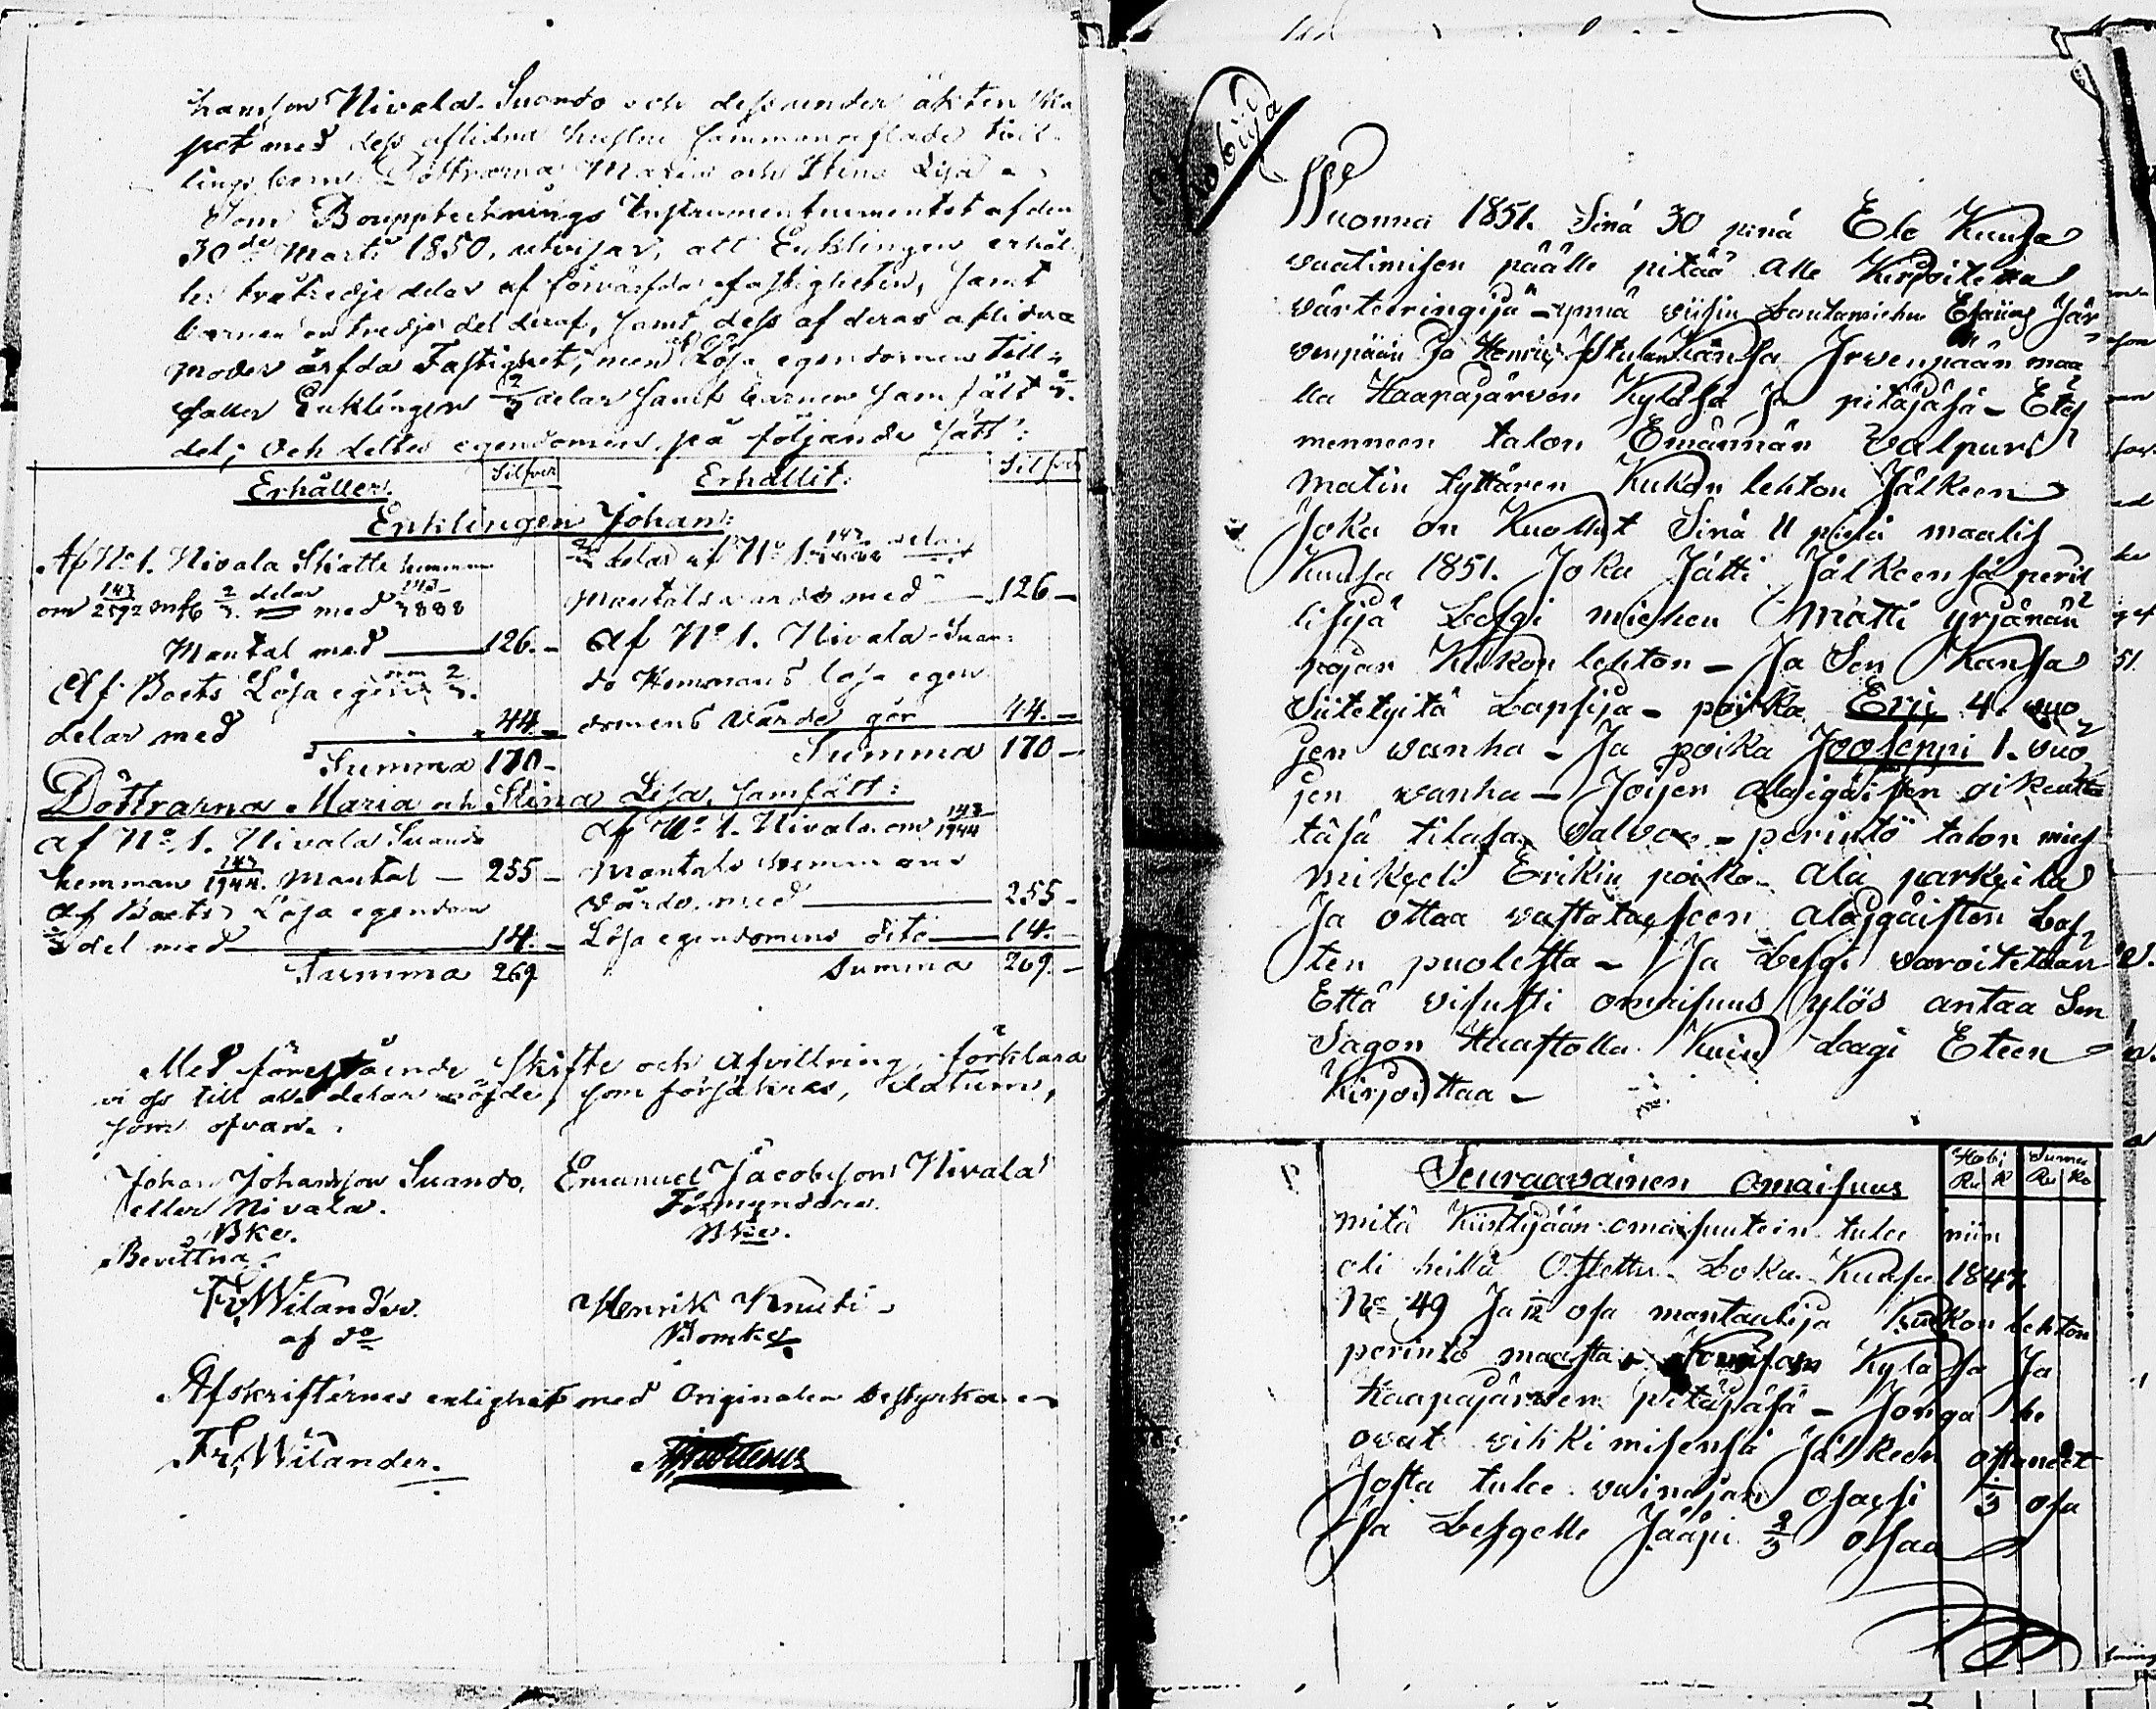 hansson Nivala Suando och dess under äkten ska
pet med dess aflidna hustru sammanaflade tvil-
lings barn Döttrarna Maria och Stina Lisa
Som Bouppteknings Instrumentumentet af den
30de Marti 1850, utvisar, att Enklingen erhål
ler två tredje delar af förvärfda fastigheten, samt
barnen en tredje del deraf, samt dess af deras aflidna
moder ärfda Fastighet, men Lösa egendomen till-
faller Enklingen 2/3 delar samt barnen samfält 1/3.
del; och deltes egendomen på följande sätt:
Erhåller. Silfver Erhållit: Silfver
Enklingen Johan:
Af No 1. Nivala Skatte hemman
om 143/2592 mtl 2/3. delar med 143/3888
Mantal med 126. -
Af Boets Lösa egendom 2/3.
delar med 44. -
Summa 170 -
2/3 delar af No 1. delar
Mantals värde med 126 -
Af No 1. Nivala Suan-
do Hemmans lösa egen
domens värde gör 44. -
Summa 170 -
Döttrarna Maria och Stina Lisa, samfält:
af No 1. Nivala Suando
hemman 143/1944. Mantal - 255 -
Af Boets Lösa egendom
1/3 del med 14. -
Summa 269
Af No 1. Nivala om 143/1944
Mantals hemmans
värde med 255 -
Lösa egendomens dito 14. -
Summa 269. -
Med förestående Skifte och Afvittring, förklara
vi oss till alla delar nöjde, som försäkras, datum,
som ofvan.
Johan Johansson Suando,
eller Nivala.
Bke.
Emanuel Jacobsson Nivala
Förmyndare.
Bke.
Bevittna:
Fr. Wilander
af do
Henrik Knuti
Bomke
Afskrifternes enlighet med Originalen bestyrka
Fr. Wilander.
Wuonna 1851. Sinä 30 pinä Elo Kuusa
vaatimisen päälle pitää Alle Kirjoitettu
värteeringijä - ynnä viisin Lautamiehen Esaiias Jär
venpään Ja Henric Kansa Jrvenpään maa
lla Haapajärven Kyläsä Ja pitäjäsä - Etes
menneen talon Emännän Valpuri
Matin tyttären Kukon lehton Jälkeen
Joka on Kuollut Sinä 11 pinä maalis
Kuusa 1851. Joka Jätti Jälkeensä peril
lisijä Lesgi miehen Matti yrjänän
pojan Kukon lehton - Ja Sen Kansa
Siitetyitä Lapsija - poika Erji 4. vuo
jen vanha - Ja poika Jooseppi 1. vuo
jen vanha - Joijen Alaigäisten oikeutta
täsä tilasa valvoo - perintö talon mies
mikeeli Erikin poika Ala parkkila
Ja ottaa vastataxeen Alaigäisten Las
ten puolesta - Ja Lesgi varoitetaan
Että visusti omaisuus ylös antaa Sen
Sagon Haastolla Kuin Lagi Eteen
Kirjoittaa -
Seuraavainen Omaisuus Hobi Ru K Suma Ru Ko
mitä Kiintijään omaisuutein tulee niin
oli heillä Ostettu Loka Kuusa 1847
No 49 Ja osa mantaalija Kukon lehton
perintö maasta Kyläsä Ja
Haapajärven pitäjäsä - Jonga he
ovat vihkimisensä Jälkeen ostandet
Josta tulee vainajan osaxsi 1/3 osa
Ja Lesgelle Jääpi 2/3 osaa